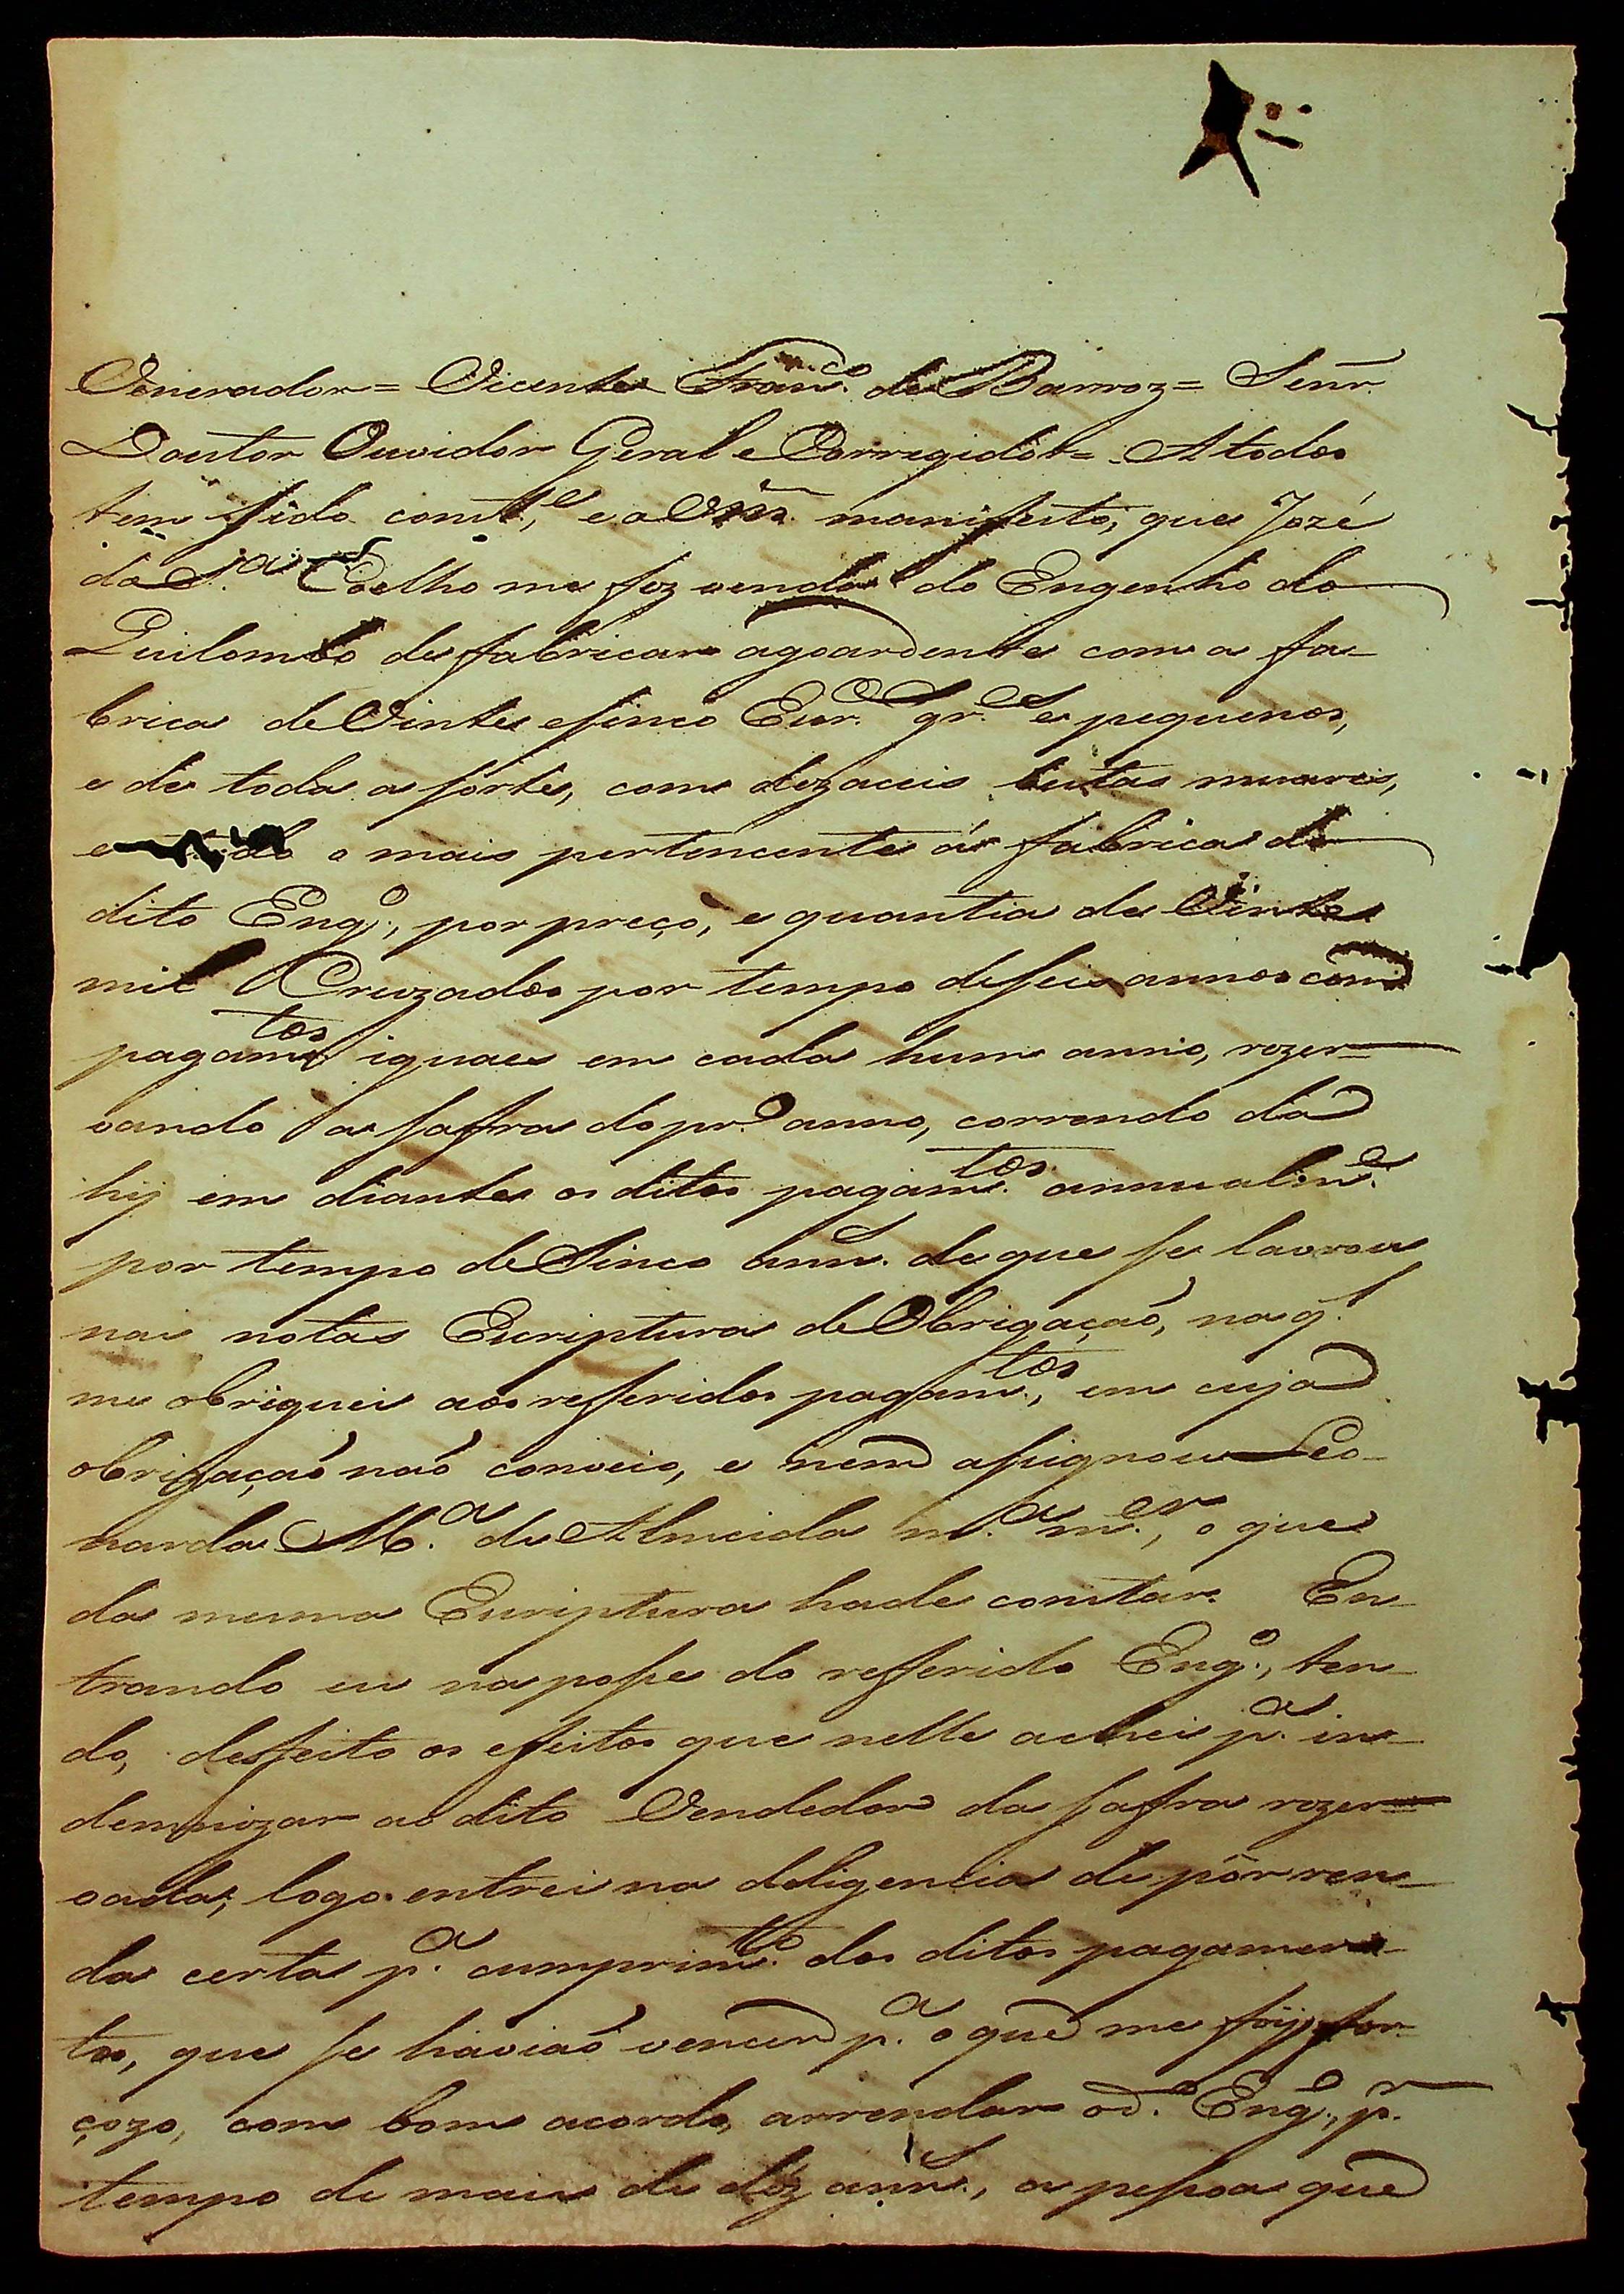 Venerador = Vicente Fran.co de Barroz = Senr.
Doutor Ouvidor Geral e Corregidor = A todos
tem sido const.e, e a VSa. manifesto, que Jozé
da S.a Coelho me fez venda do Engenho do
Quilombo de fabricar agoardente com a fa-
brica de Vinte e sinco Escr.os gr.es e pequenos,
e de toda a sorte, com dezaceis bestas muares,
e tudo o mais pertencente á fabrica do
dito Eng.o, por preço, e quantia de Vinte
mil Cruzados por tempo de seis annos com
pagam.tos iguaes em cada hum anno, rezer-
vando a safra do pr.o anno, correndo da
hij em diante os ditos pagam.tos annualm.e
por tempo de Sinco ann.s de que se lavrou
nas notas Escriptura de Obrigaçaõ, na q.l
me obriguei aos refferidos pagam.tos, em cuja
obrigaçaõ naõ conveio, e nem assignou Leo-
narda M.a de Almeida m.a m.er, o que
da mesma Escriptura hade constar. En-
trando eu na posse do refferido Eng.o, ten-
do, desfeito os efeitos que nelle achei p.a in-
demnizar ao dito Vendedor da safra rezer-
vada; logo entrei na deligencia de pôr ren-
da certa p.a cumprim.to dos ditos pagamen-
tos, que se haviaõ vencer p.a o que me foij for-
çozo, com bom acordo, arrendar o d.o Eng.o, p.r
tempo de mais de dez ann.s, a pessoa que